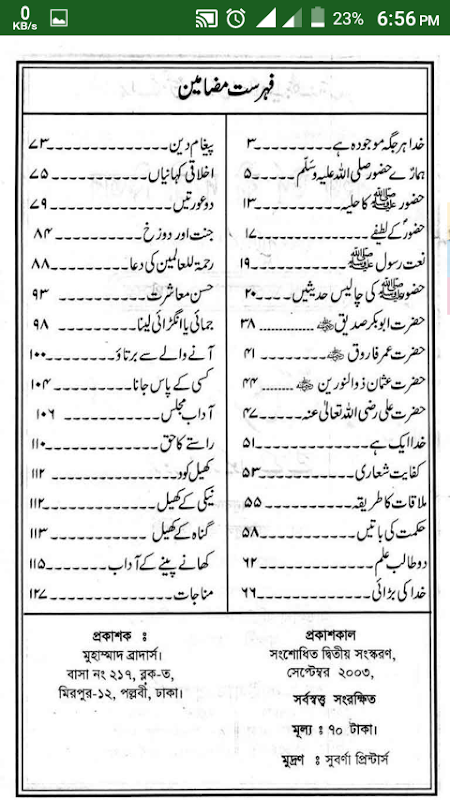 0
KB/s
23%
6:56 PM
فہرست مضامین
خدا ہر جگہ موجود ہے ........... ۳
ہمارے حضور صلی اللہ علیہ وسلم ..... ۵
حضور ﷺ کا حلیہ ........... ۱۳
حضور کے لطیفے ........... ۱۷
نعت رسول ﷺ ........... ۱۹
حضور ﷺ کی چالیس حدیثیں .... ۲۰
حضرت ابوبکر صدیق ؓ ........... ۳۸
حضرت عمر فاروق ؓ ........... ۴۱
حضرت عثمان ذوالنورین ؓ ........ ۴۴
حضرت علی رضی اللہ تعالیٰ عنہ ...... ۴۷
خدا ایک ہے ........... ۵۱
کفایت شعاری ........... ۵۳
ملاقات کا طریقہ ........... ۵۵
حکمت کی باتیں ........... ۵۸
دو طالب علم ........... ۶۲
خدا کی بڑائی ........... ۶۶
پیغام دین ........... ۷۳
اخلاقی کہانیاں ........... ۷۵
دو عورتیں ........... ۷۹
جنت اور دوزخ ........... ۸۴
رحمۃ للعالمین کی دعا ........... ۸۸
حسن معاشرت ........... ۹۳
جمائی یا انگڑائی لینا ........... ۹۸
آنے والے سے برتاؤ ........... ۱۰۰
کسی کے پاس جانا ........... ۱۰۴
آداب مجلس ........... ۱۰۶
راستے کا حق ........... ۱۱۰
کھیل کود ........... ۱۱۲
نیکی کے کھیل ........... ۱۱۲
گناہ کے کھیل ........... ۱۱۳
کھانے پینے کے آداب ........... ۱۱۵
مناجات ........... ۱۲۷
প্রকাশক ঃ
মুহাম্মাদ ব্রাদার্স।
বাসা নং ২১৭, ব্লক-ত,
মিরপুর-১২, পল্লবী, ঢাকা।
প্রকাশকাল
সংশোধিত দ্বিতীয় সংস্করণ,
সেপ্টেম্বর ২০০৩,
সর্বস্বত্ত্ব সংরক্ষিত
মূল্য ঃ ৭০ টাকা।
মুদ্রণ ঃ সুবর্ণা প্রিন্টার্স